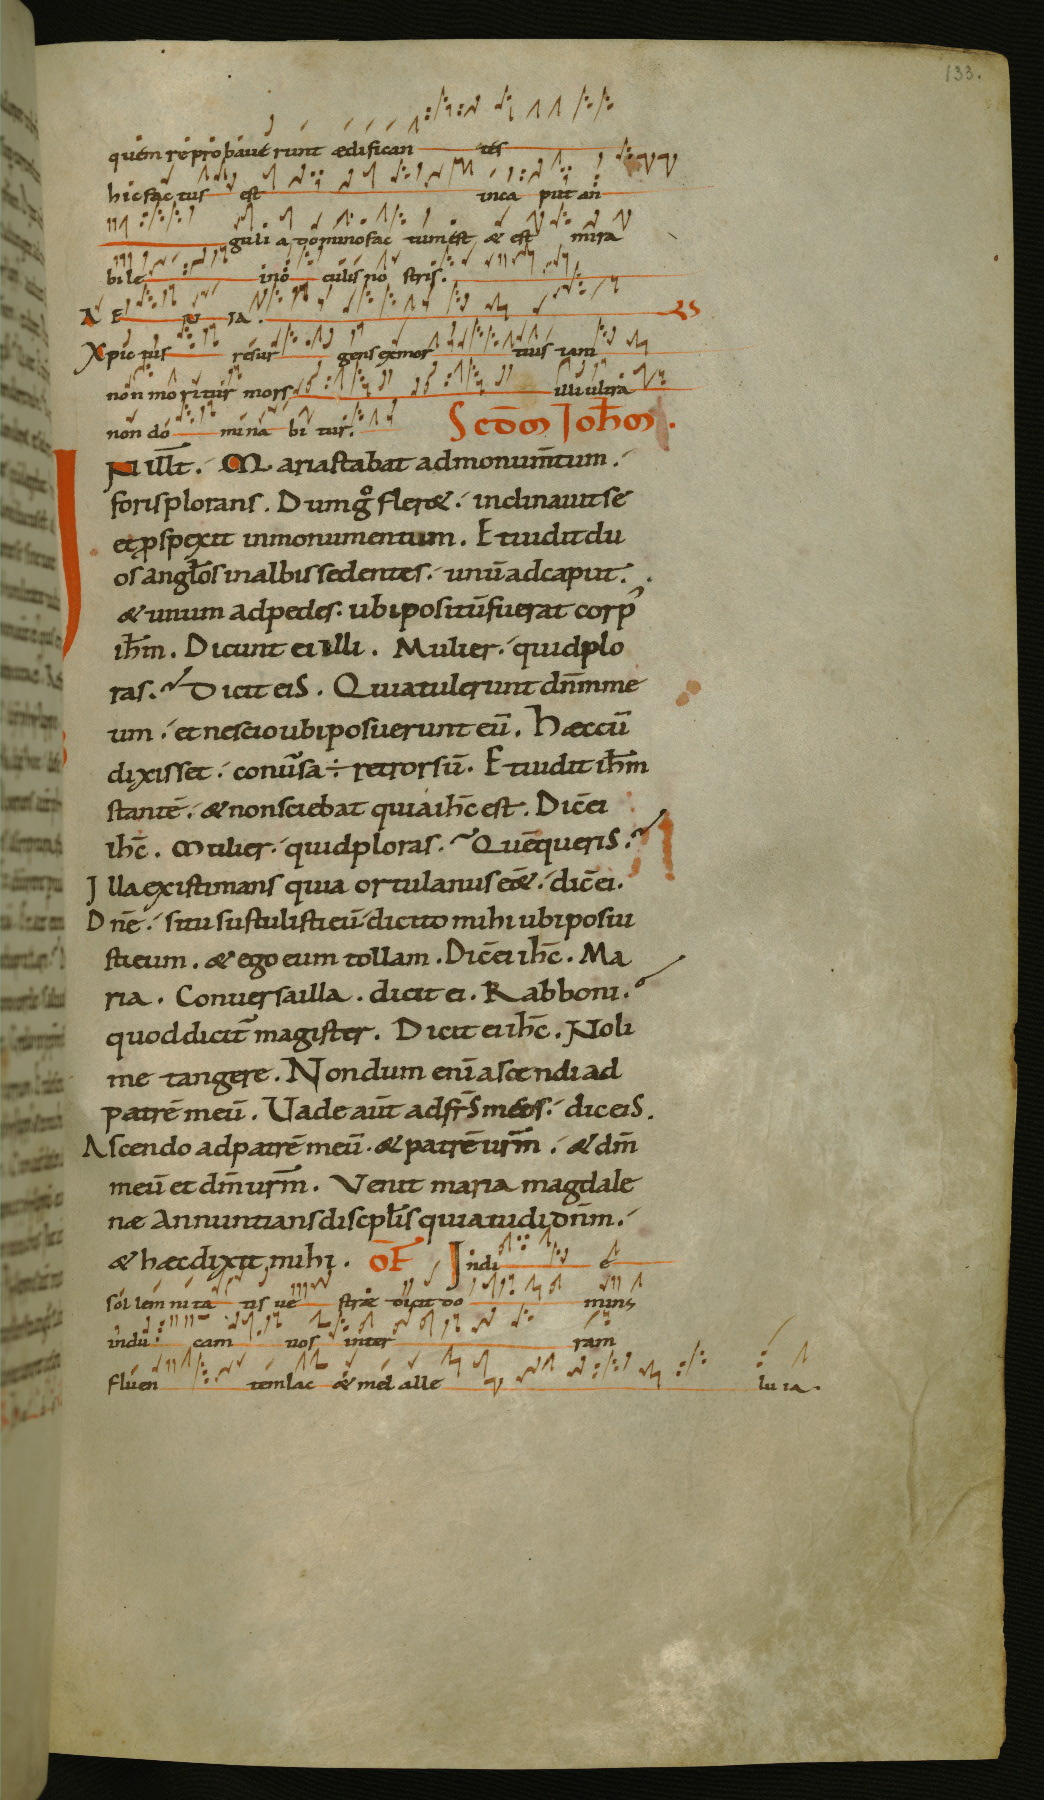 133.
quem reprobaverunt ædifican tes
hic factus est inca put an
guli a domino factum est & est mira
bile inoculis no stris.
A E u IA.
Xpictus resur gens exmor tuis iam
non moritur mors illi ultra
non do mina bi tur. Scdm Johem.
N illt. Maria stabat admonum̄tum.
foris plorans. Dum g̊ fler&. inclinauit se
et pspexit in monumentum. Et uidit du
os angl̄os inalbis sedentes. unū adcaput.
& unum adpedes. ubi positū fuerat corp'
ih̄m. Dicunt ei illi. Mulier. quid plo
ras. Dicit eis. Quia tulerunt dn̄m me
um. et nescio ubi posuerunt eū. Hæc cū
dixisset. conūsa ÷ retrorsū. Et uidit ih̄m
stantē. & non sciebat quia ih̄c est. Dic̄ ei
ih̄c. Mulier. quid ploras. Quē queris.
Illa existimans quia ortulanus ēet. dic̄ ei.
Dn̄e. si tu sustulisti eū dicito mihi ubi posui
sti eum. & ego eum tollam. Dic̄ ei ih̄c. Ma
ria. Conuersa illa. dicit ei. Rabboni.
quod dicit̄ magister. Dicit ei ih̄c. Noli
me tangere. Nondum enī ascendi ad
patrē meū. Uade aūt ad fr̄s meos. dic eis.
Ascendo ad patrē meū. & patrē ur̄m. & dm̄
meū et dm̄ ur̄m. Venit maria magdale
næ Annuntians discipl̄is quia uidi dn̄m.
& hæc dixit mihi. OF Indi e
sollemnita tis ue stræ dicit do minus
indu cam uos inter ram
fluen tem lac & mel alle lu ia.